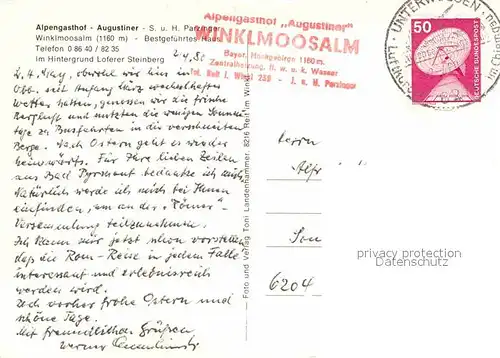 Alpengasthof - Augustiner - S. u. H.
Winklmoosalm (1160 m) - Bestgeführtes Haus
Telefon 0 86 40 / 82 35
Im Hintergrund Loferer Steinberg
Alpengasthof „Augustiner"
WINKLMOOSALM
Bayer. Hochgebirge 1160 m.
Zentralheizung, fl. w. u. k. Wasser
Tel. Reit i. Winkl 235 -
50
DEUTSCHE BUNDESPOST
UNTERWÖSSEN
Luftkur
obwohl wir hier in
Obb. seit Anfang März wechselhaftes
Wetter hatten, genossen wir die frische
Bergluft und nutzten die wenigen Sonnen
tage zu Busfahrten in die verschneiten
Berge. Nach Ostern geht es wieder
heimwärts. Für Ihre lieben Zeilen
aus Bad Pyrmont bedanke ich mich.
Natürlich werde ich mich bei Ihnen
einfinden, um an der "Römer"-
Versammlung teilzunehmen.
Ich kann mir jetzt schon vorstellen,
daß die Rom-Reise in jedem Falle
interessant und erlebnisreich
werden wird.
Doch vorher frohe Ostern und
schöne Tage.
Mit freundlichen Grüßen
Werner
Foto und Verlag Toni Landenhammer 8216 Reit im Winkl
Herrn
6204
privacy protection
Datenschutz